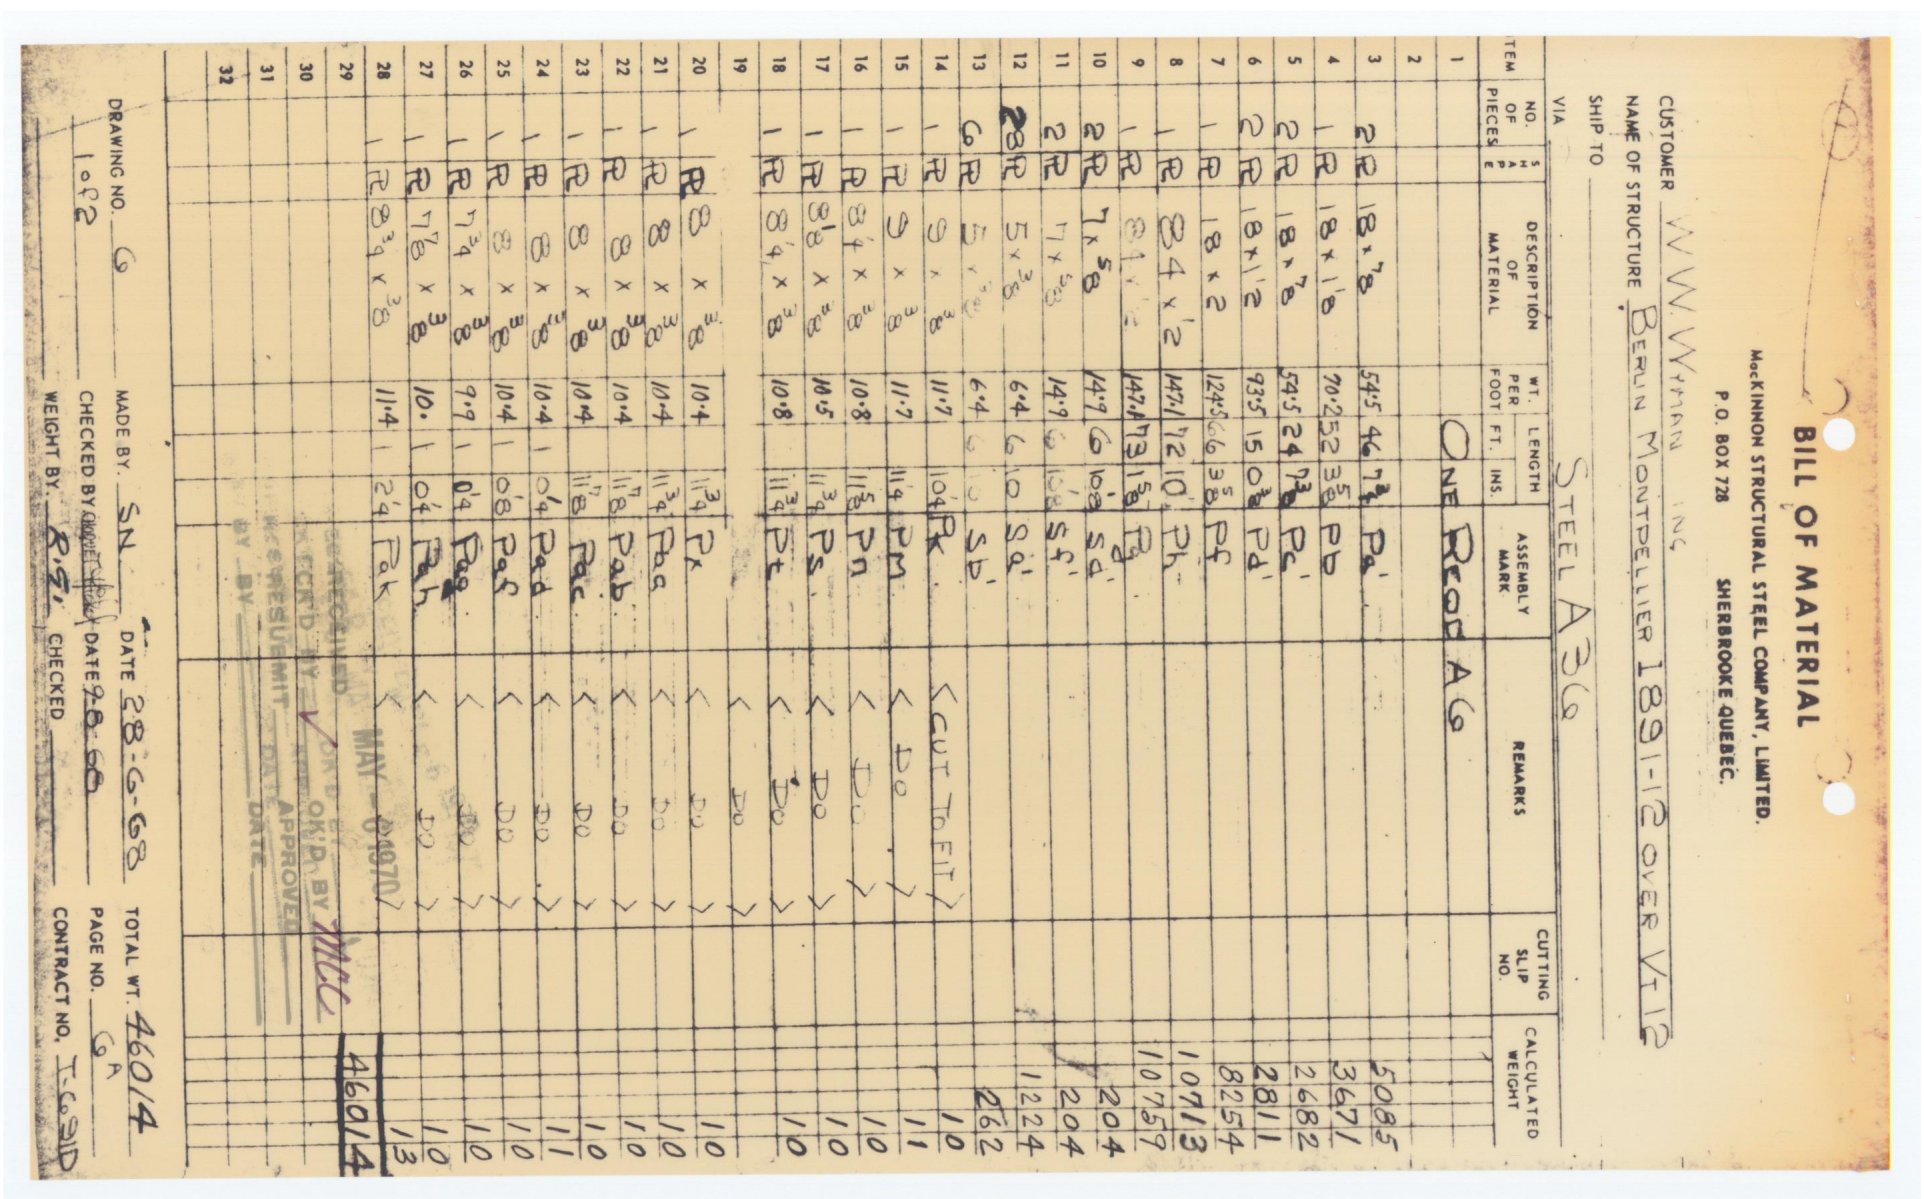 BILL OF MATERIAL
MacKINNON STRUCTURAL STEEL COMPANY, LIMITED.
P.O. BOX 728 SHERBROOKE QUEBEC.
CUSTOMER W. W. WYMAN INC
NAME OF STRUCTURE BERLIN MONTPELLIER 1891-12 OVER VT 12
SHIP TO
VIA STEEL A36
ITEM NO. OF PIECES SHAPE DESCRIPTION OF MATERIAL WT. PER FOOT LENGTH FT. INS. ASSEMBLY MARK REMARKS CUTTING SLIP NO. CALCULATED WEIGHT
1 ONE REQD A6
2
3 2 PL 18 x 7/8 54.5 46 7 3/8 Pa' 5085
4 1 PL 18 x 1 1/8 70.2 52 3 5/8 Pb 3671
5 2 PL 18 x 7/8 54.5 24 7 3/8 Pc' 2682
6 2 PL 18 x 1 1/2 93.5 15 0 3/8 Pd' 2811
7 1 PL 18 x 2 124.5 66 3 5/8 Pf 8254
8 1 PL 84 x 1/2 147.1 72 10 Ph 10713
9 1 PL 84 x 1/2 147.1 73 1 5/8 Pg 10759
10 2 PL 7 x 5/8 14.9 6 10 1/8 Sd' 204
11 2 PL 7 x 5/8 14.9 6 10 1/8 Sf' 204
12 28 PL 5 x 3/8 6.4 6 10 Sa' 1224
13 6 PL 5 x 3/8 6.4 6 10 Sb' 262
14 1 PL 9 x 3/8 11.7 10 1/4 Pk < CUT TO FIT > 10
15 1 PL 9 x 3/8 11.7 11 1/4 PM < DO > 11
16 1 PL 8 1/4 x 3/8 10.8 11 5/8 Pn < DO > 10
17 1 PL 8 1/8 x 3/8 10.5 11 3/4 Ps < DO > 10
18 1 PL 8 1/4 x 3/8 10.8 11 3/4 Pt < DO > 10
19 < DO >
20 1 PL 8 x 3/8 10.4 11 3/4 Px < DO > 10
21 1 PL 8 x 3/8 10.4 11 3/4 Paa < DO > 10
22 1 PL 8 x 3/8 10.4 11 7/8 Pab < DO > 10
23 1 PL 8 x 3/8 10.4 11 7/8 Pac < DO > 10
24 1 PL 8 x 3/8 10.4 1 0 1/4 Pad < DO > 11
25 1 PL 8 x 3/8 10.4 1 0 1/8 Paf < DO > 10
26 1 PL 7 3/4 x 3/8 9.9 1 0 1/4 Pag < DO > 10
27 1 PL 7 7/8 x 3/8 10. 1 0 1/4 Pah < DO > 10
28 1 PL 8 3/4 x 3/8 11.4 1 2 1/4 Pak < DO > 13
29 46014
30
31
32
RECEIVED
MAY 1970
FCR'D BY OK'D BY mcc
RESUBMIT APPROVED
BY DATE
BY DATE
DRAWING NO. 6 MADE BY. SN DATE 28-6-68 TOTAL WT. 46014
1 of 2 CHECKED BY DATE 9-8-68 PAGE NO. 6A
WEIGHT BY. R.G. CHECKED CONTRACT NO. T-691D